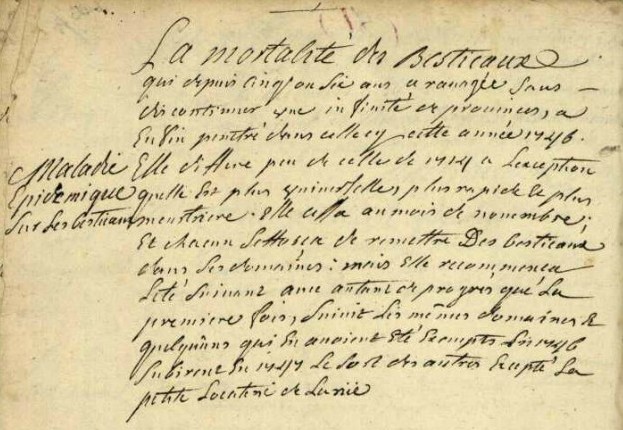 La mortalité des Bestieaux
qui depuis cinq ou six ans a ravagée sans
discontinuer une infinité de provinces, a
Enfin penétré dans celle cy cette année 1746.
Elle differe peu de celle de 1714 a L'exception
quelle Est plus universelle, plus rapide Et plus
meurtriere. Elle cessa au mois de novembre;
Et chacun sefforça de remettre Des bestieaux
dans ses domaines: mais Elle recommença
L'eté suivant avec autant de progrés que La
premiere fois, suivit Les mêmes domaines &
quelqu'uns qui En avoient Eté Exempts En 1746
subirent En 1747 Le sort des autres Excepté La
petite de
Maladie
Epidemique
sur Les bestiaux